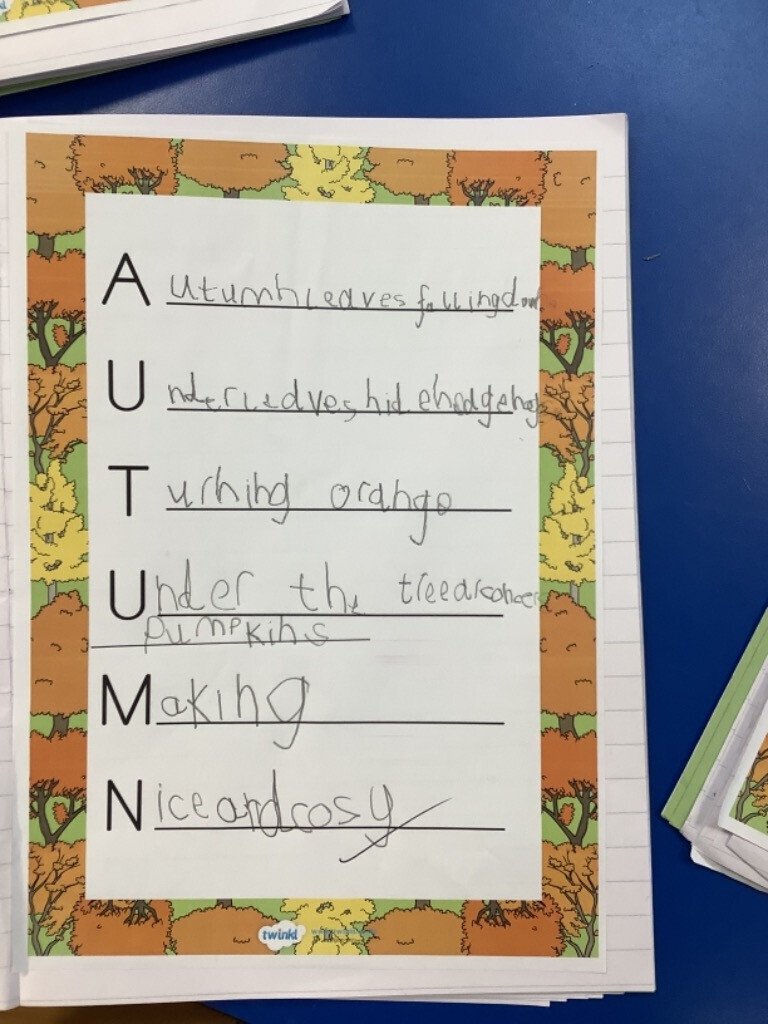 Autumn leaves falling down
Under leaves hid ehodgehog
Turning orange
Under the tree arconcer
pumpkins
Making
Nice and cosy
twinkl